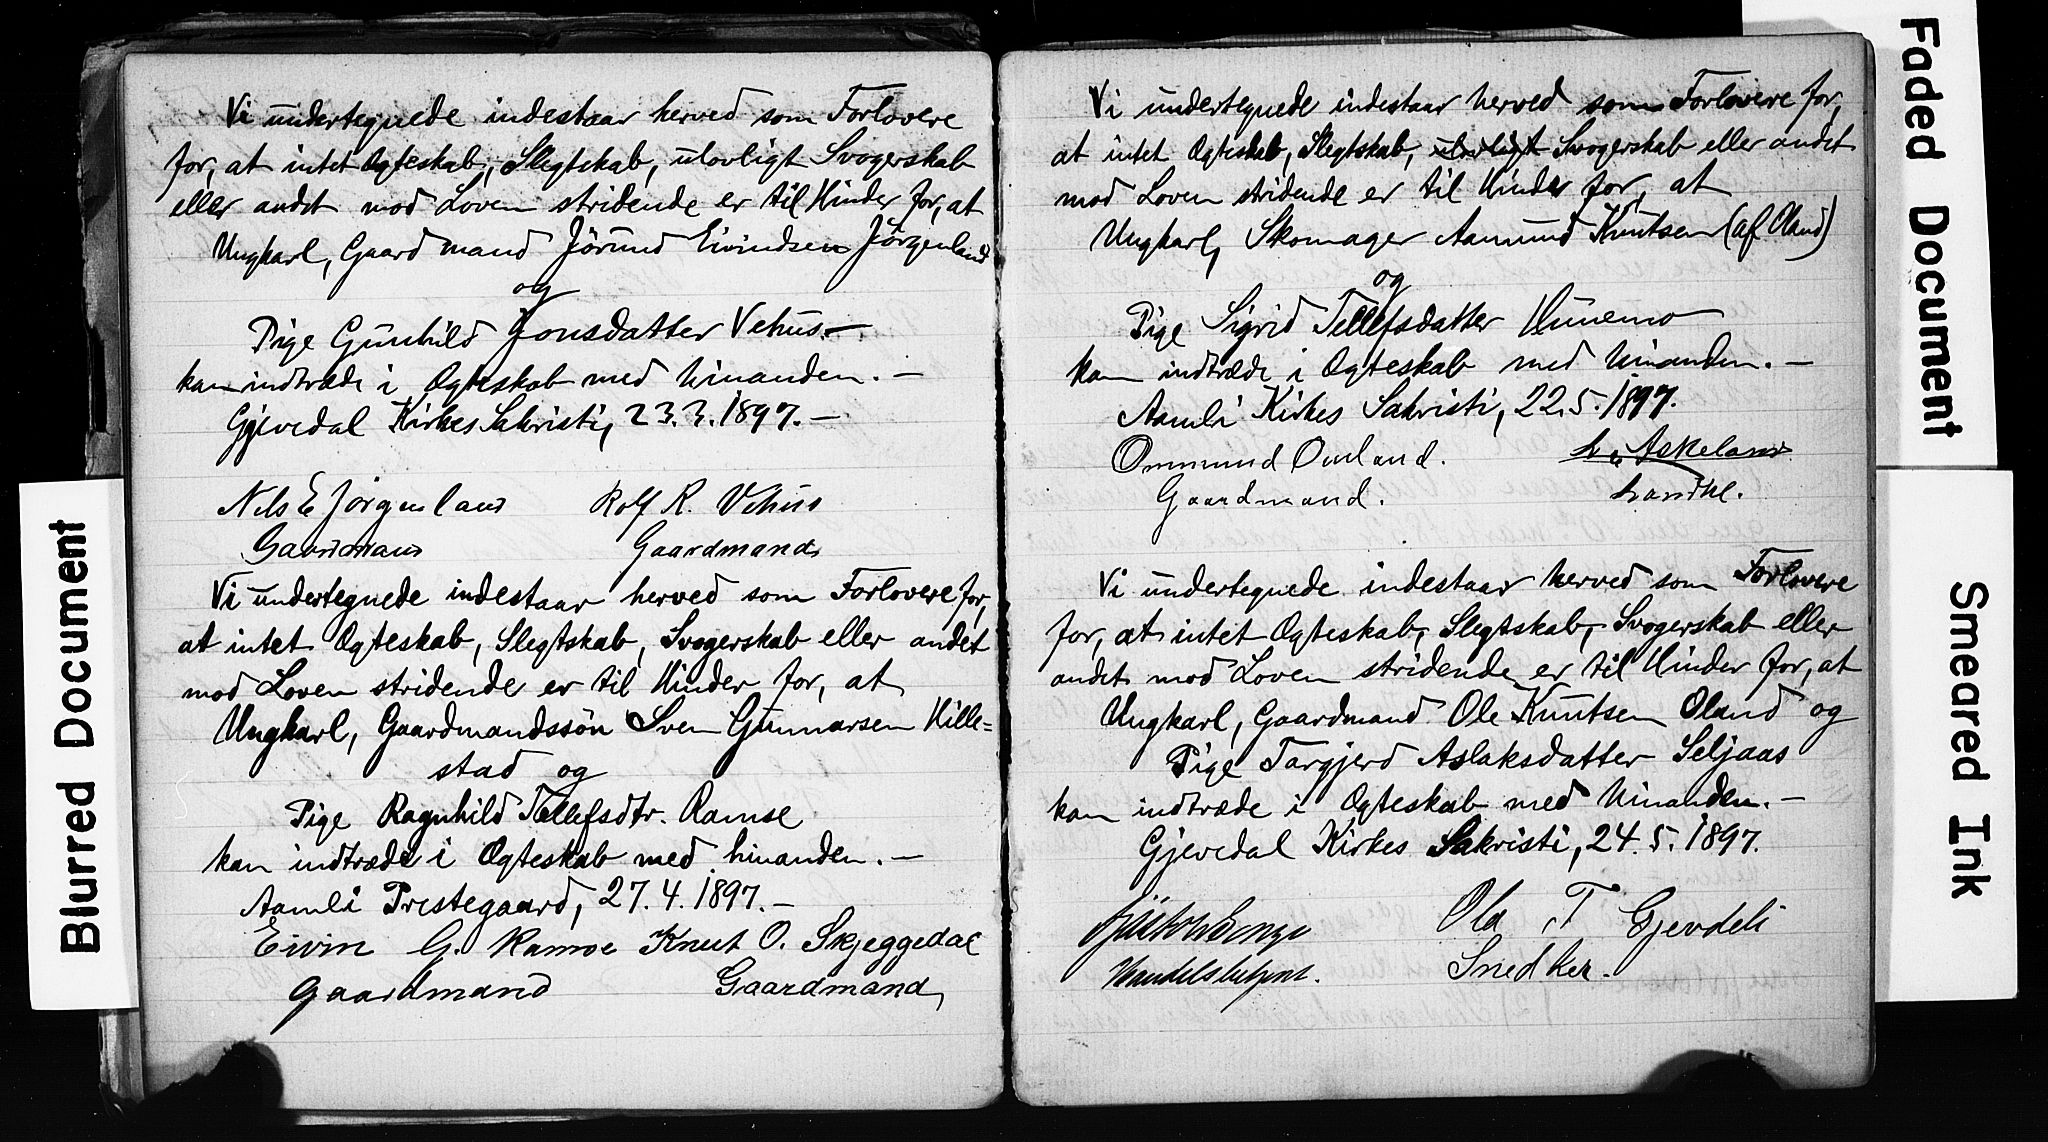 Vi undertegnede indestaar herved som Forlovere
for, at intet Ogteskab, Slegtskab, ulovligt Svogerskab
eller andet mod Loven stridende er til Hinder for, at
Ungkarl, Gaardmand Jörund Eivindsen Jörgenland
og
Pige Gunhild Jonsdatter Vehus.—
kan indtræde i Ogteskab med hinanden.—
Gjevedal Kirkes Sakristi, 23.3.1897.—
Nils E Jörgenland Rolf R. Vehus
Gaardmand Gaardmand
Vi undertegnede indestaar herved som Forlovere for,
at intet Ogteskab, Slegtskab, Svogerskab eller andet
mod Loven stridende er til Hinder for, at
Ungkarl, Gaardmandssön Sven Gunnarsen Hille=
stad og
Pige Ragnhild Tellefsdtr. Ramse
kan indtræde i Ogteskab med hinanden.—
Aamli Prestegaard, 27.4.1897.—
Eivin G. Ramse Knut O. Skjeggedal
Gaardmand Gaardmand
Vi undertegnede indestaar herved som Forlovere for,
at intet Ogteskab, Slegtskab, ulovligt Svogerskab eller andet
mod Loven stridende er til Hinder for, at
Ungkarl, Skomager Aamund Knutsen (af Oland)
og
Pige Sigrid Tellefsdatter Hunemo
kan indtræde i Ogteskab med hinanden.—
Aamli Kirkes Sakristi, 22.5.1897.
Ommund Omland. Askeland
Gaardmand. Landhl.
Vi undertegnede indestaar herved som Forlovere
for, at intet Ogteskab, Slegtskab, Svogerskab eller
andet mod Loven stridende er til Hinder for, at
Ungkarl, Gaardmand Ole Knutsen Oland og
Pige Targjerd Aslaksdatter Seljaas
kan indtræde i Ogteskab med hinanden.—
Gjevedal Kirkes Sakristi, 24.5.1897.
Ola T Gjevdeli
Handelsbetjent. Snedker.
Blurred Document
Faded Document
Smeared Ink